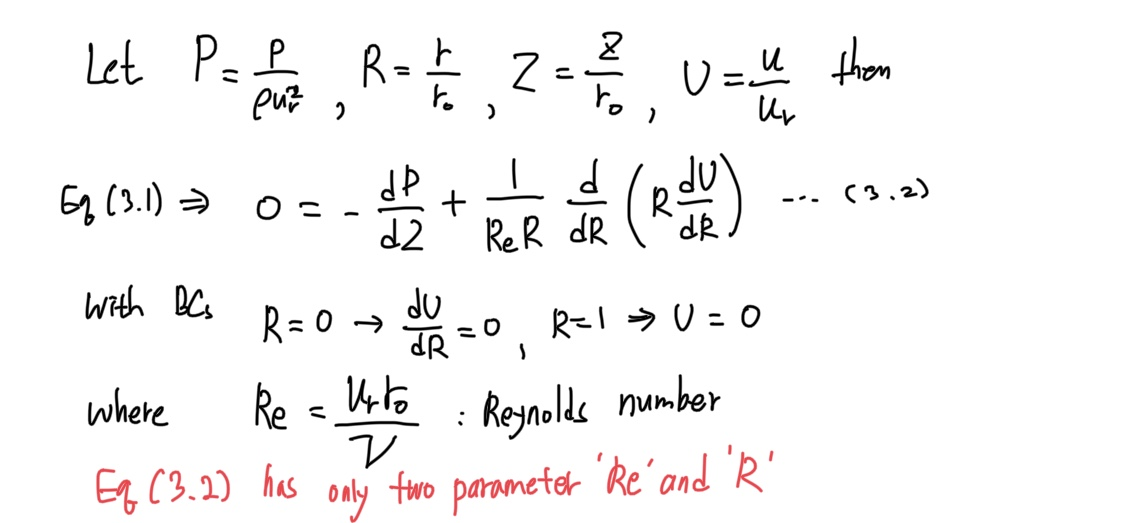 Let P = p/(ρu_r²), R = r/r₀, Z = z/r₀, U = u/u_r then
Eq (3.1) ⇒ 0 = - dP/dZ + 1/(Re R) d/dR (R dU/dR) ... (3.2)
with BCs R = 0 → dU/dR = 0, R=1 ⇒ U = 0
where Re = u_r r₀/ν : Reynolds number
Eq (3.2) has only two parameter 'Re' and 'R'